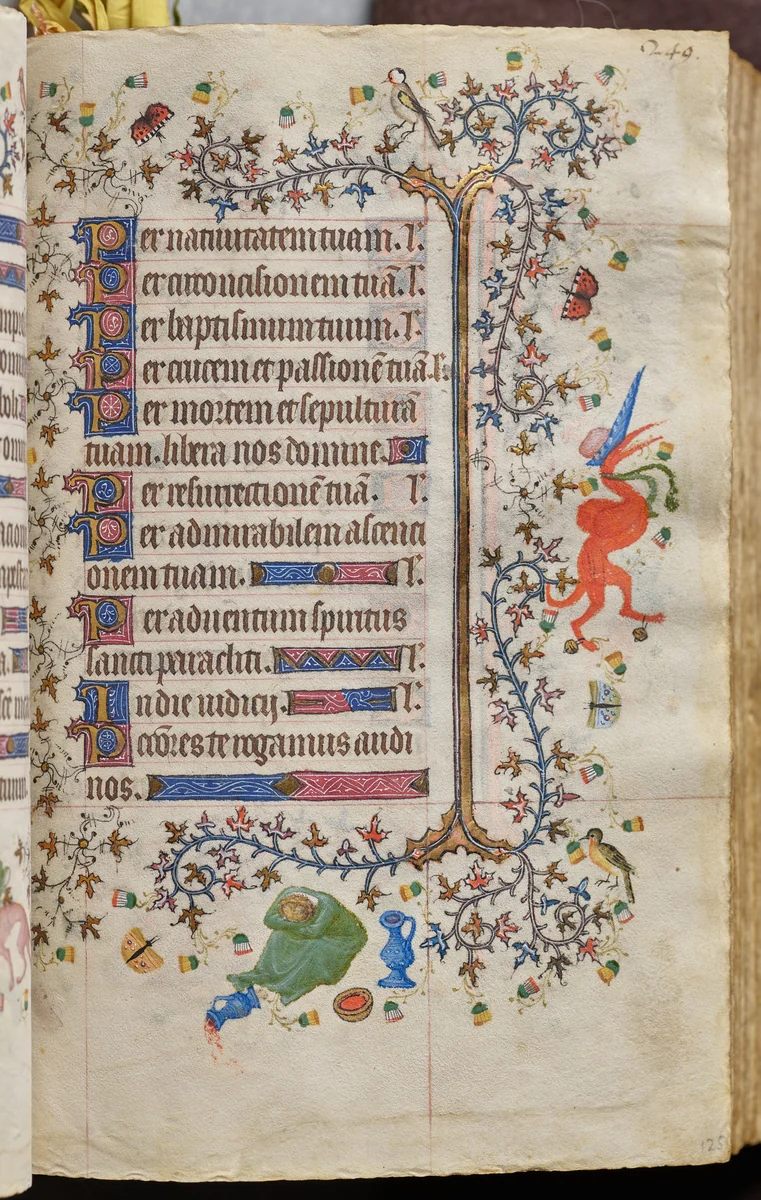 249.
Per natiuitatem tuam. l'.
Per circoncisionem tuā. l'.
Per baptismum tuum. l'.
Per crucem et passionē tuā. l'.
Per mortem et sepulturā
tuam. libera nos domine.
Per resurrectionē tuā. l'.
Per admirabilem ascenci
onem tuam. l'.
Per aduentum spiritus
sancti paracliti. l'.
In die iudicij. l'.
Pccōres te rogamus audi
nos.
125